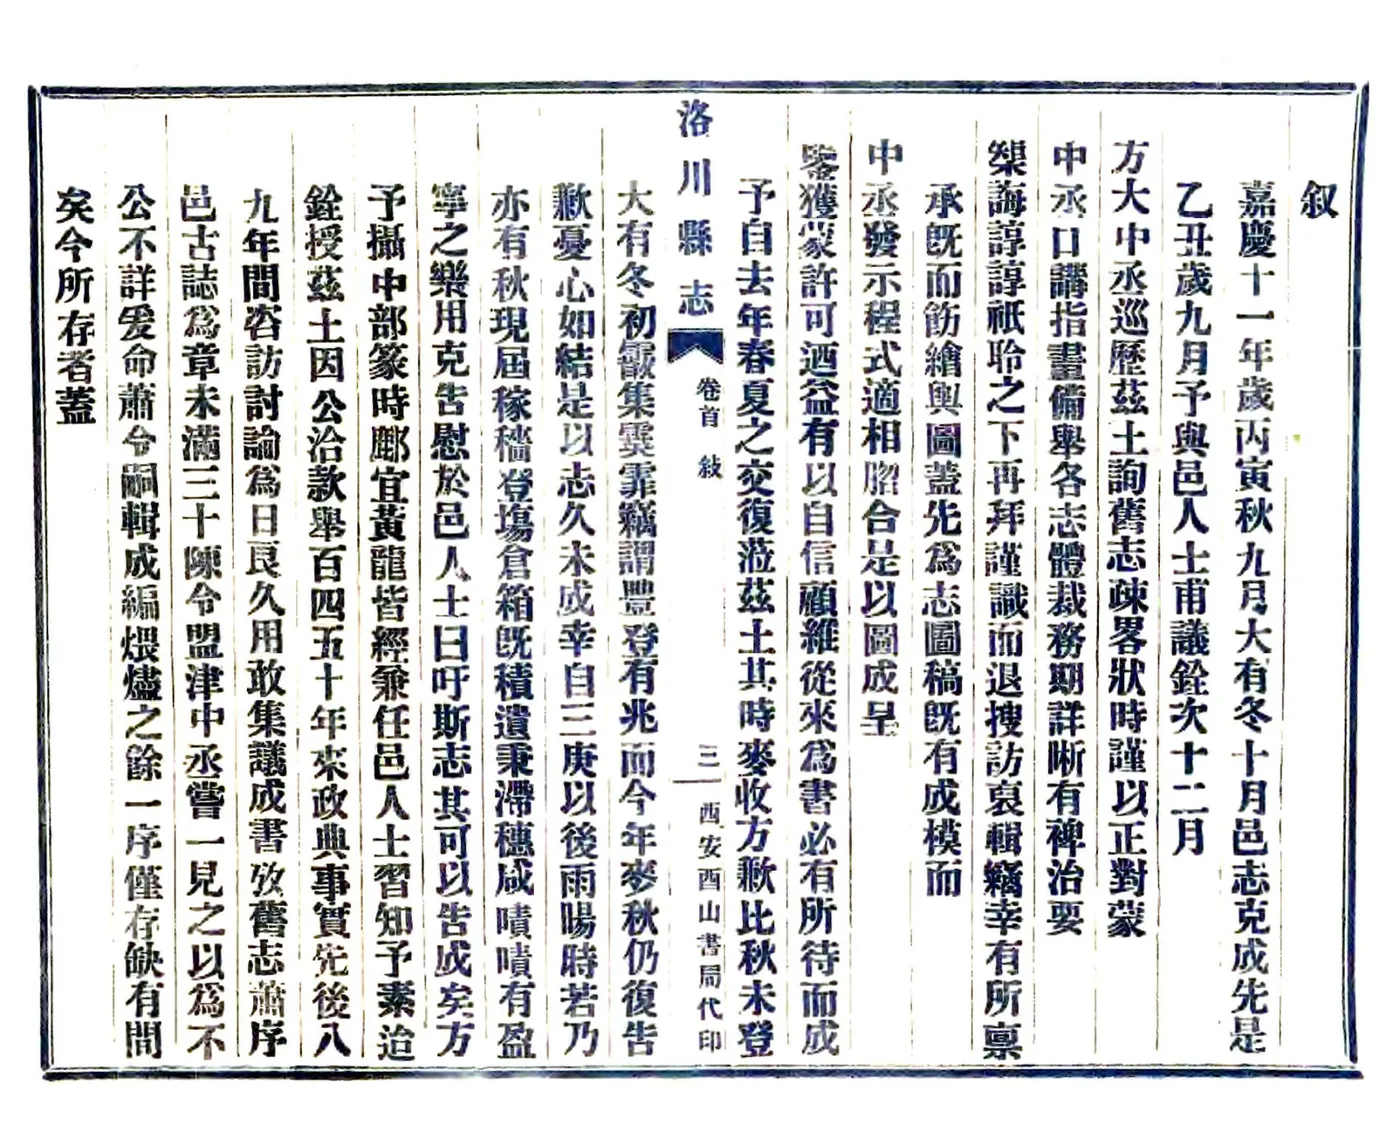 叙
嘉慶十一年歲丙寅秋九月大有冬十月邑志克成先是
乙丑歲九月予與邑人士甫議銓次十二月
方大中丞巡歷茲土詢舊志疎畧狀時謹以正對蒙
中丞口講指畫備舉各志體裁務期詳晰有裨治要
槼誨諄諄祇聆之下再拜謹識而退搜訪裒輯竊幸有所禀
承既而飭繪輿圖蓋先為志圖稿既有成模而
中丞發示程式適相脗合是以圖成呈
鑒獲蒙許可迺益有以自信顧維從來為書必有所待而成
予自去年春夏之交復蒞茲土其時麥收方歉比秋未登
洛川縣志
卷首 敍
三
西安酉山書局代印
大有冬初霰集雰霏竊謂豐登有兆而今年麥秋仍復告
歉憂心如結是以志久未成幸自三庚以後雨暘時若乃
亦有秋現屆稼穡登塲倉箱既積遺秉滯穗咸嘖嘖有盈
寧之樂用克告慰於邑人士曰吁斯志其可以告成矣方
予攝中部篆時鄜宜黃龍皆經兼任邑人士習知予素迨
銓授茲土因公洽款舉百四五十年來政典事實先後八
九年間咨訪討論為日良久用敢集議成書攷舊志蕭序
邑古誌為章未滿三十陳令盟津中丞嘗一見之以為不
公不詳爰命蕭令嗣輯成編煨燼之餘一序僅存缺有間
矣今所存者蓋